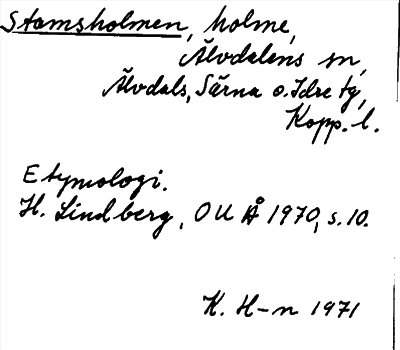 Stamsholmen, holme,
Älvdalens sn,
Älvdals, Särna o. Idre tg,
Kopp. l.
Etymologi.
H. Lindberg, OUÅ 1970, s. 10.
K. H-n 1971